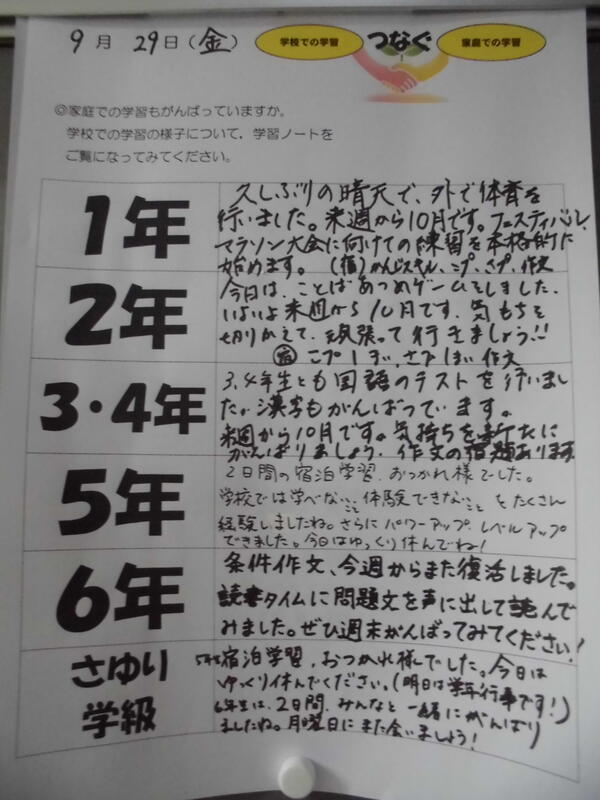 9月 29日(金)
学校での学習 つなぐ 家庭での学習
◎家庭での学習もがんばっていますか。
学校での学習の様子について、学習ノートを
ご覧になってみてください。
1年
久しぶりの晴天で、外で体育を
行いました。来週から10月です。フェスティバル、
マラソン大会に向けての練習を本格的に
始めます。(宿)かんじスキル、こプ、さプ、作文
2年
今日は、ことばあつめゲームをしました。
いよいよ来週から10月です。気もちを
切りかえて、頑張って行きましょう!!
宿 こプ1まい、さプ1まい 作文
3・4年
3.4年生とも国語のテストを行いまし
た。漢字もがんばっています。
来週から10月です。気持ちを新たに
がんばりましょう。作文の宿題あります。
5年
2日間の宿泊学習、おつかれ様でした。
学校では学べないこと、体験できないことをたくさん
経験しましたね。さらにパワーアップ、レベルアップ
できました。今日はゆっくり休んでね!
6年
条件作文、今週からまた復活しました。
読書タイムに問題文を声に出して読んで
みました。ぜひ週末がんばってみてください!
さゆり
学級
5年生宿泊学習、おつかれ様でした。今日は
ゆっくり休んでください。(明日は学年行事です!)
6年生は、2日間、みんなと一緒にがんばり
ましたね。月曜日にまた会いましょう!